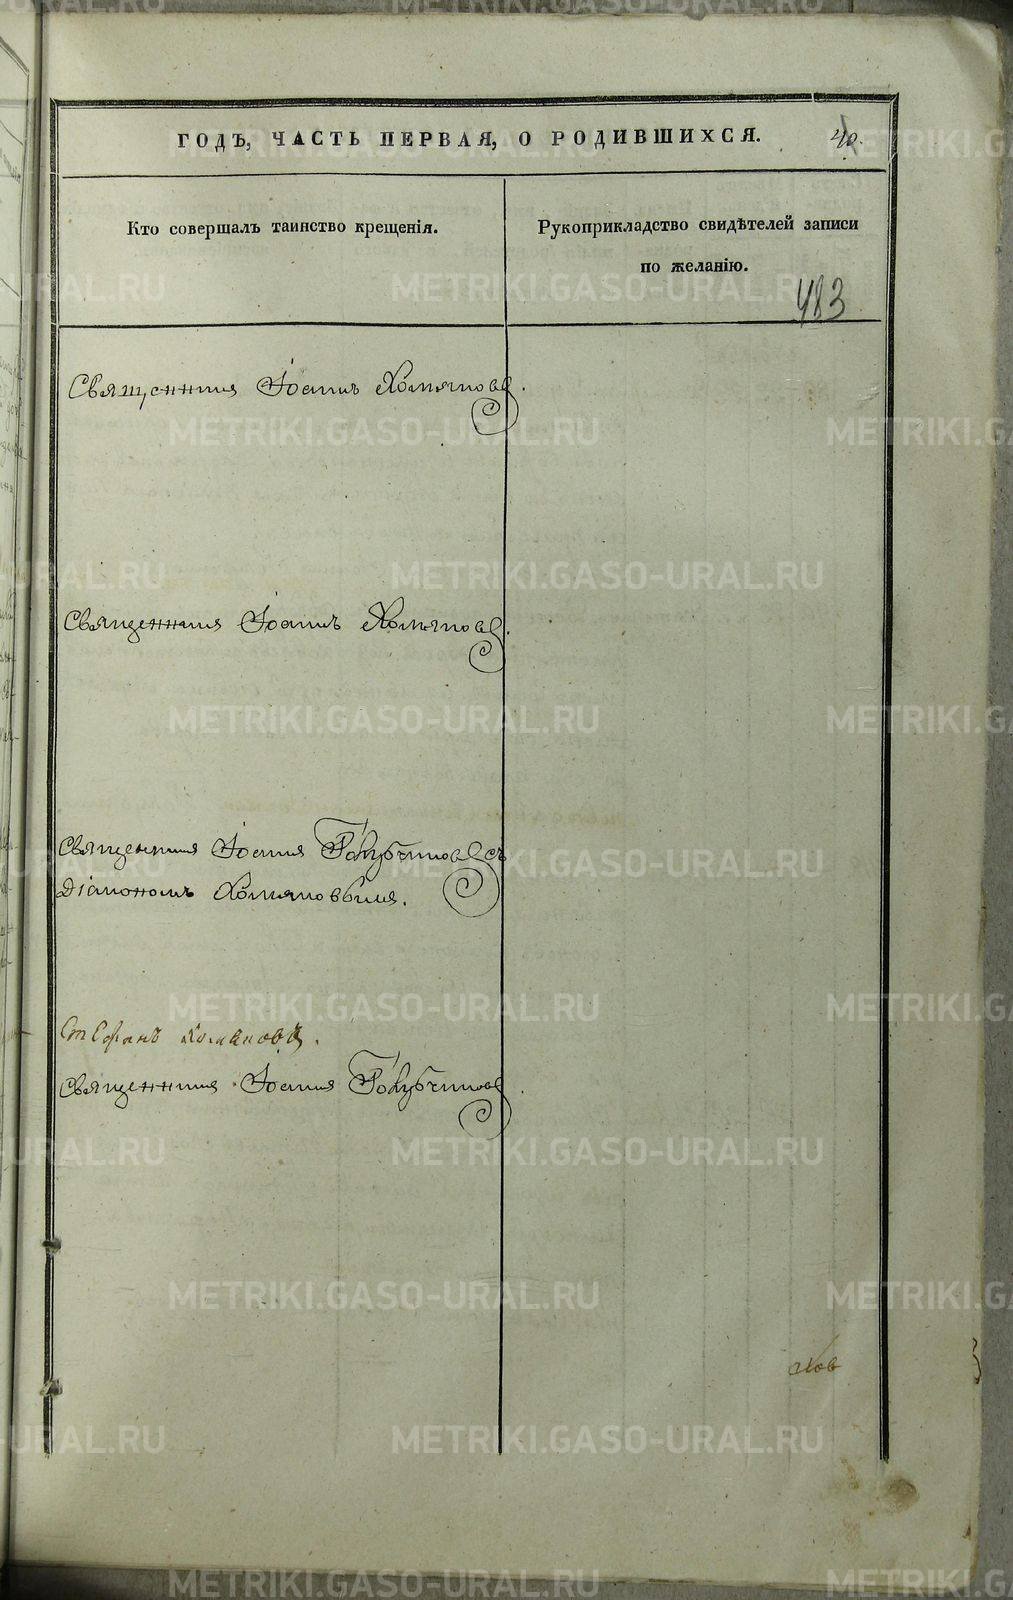 ГОДЪ, ЧАСТЬ ПЕРВАЯ, О РОДИВШИХСЯ. 40.
Кто совершалъ таинство крещенія.
Рукоприкладство свидѣтелей записи
по желанію.
483
Священникъ Іоаннъ Хомяковъ.
Священникъ Іоаннъ Хомяковъ.
Священникъ Іоаннъ Голубчиковъ съ
Діакономъ Хомяковымъ.
Стефанъ Хомяковъ.
Священникъ Іоаннъ Голубчиковъ.
METRIKI.GASO-URAL.RU